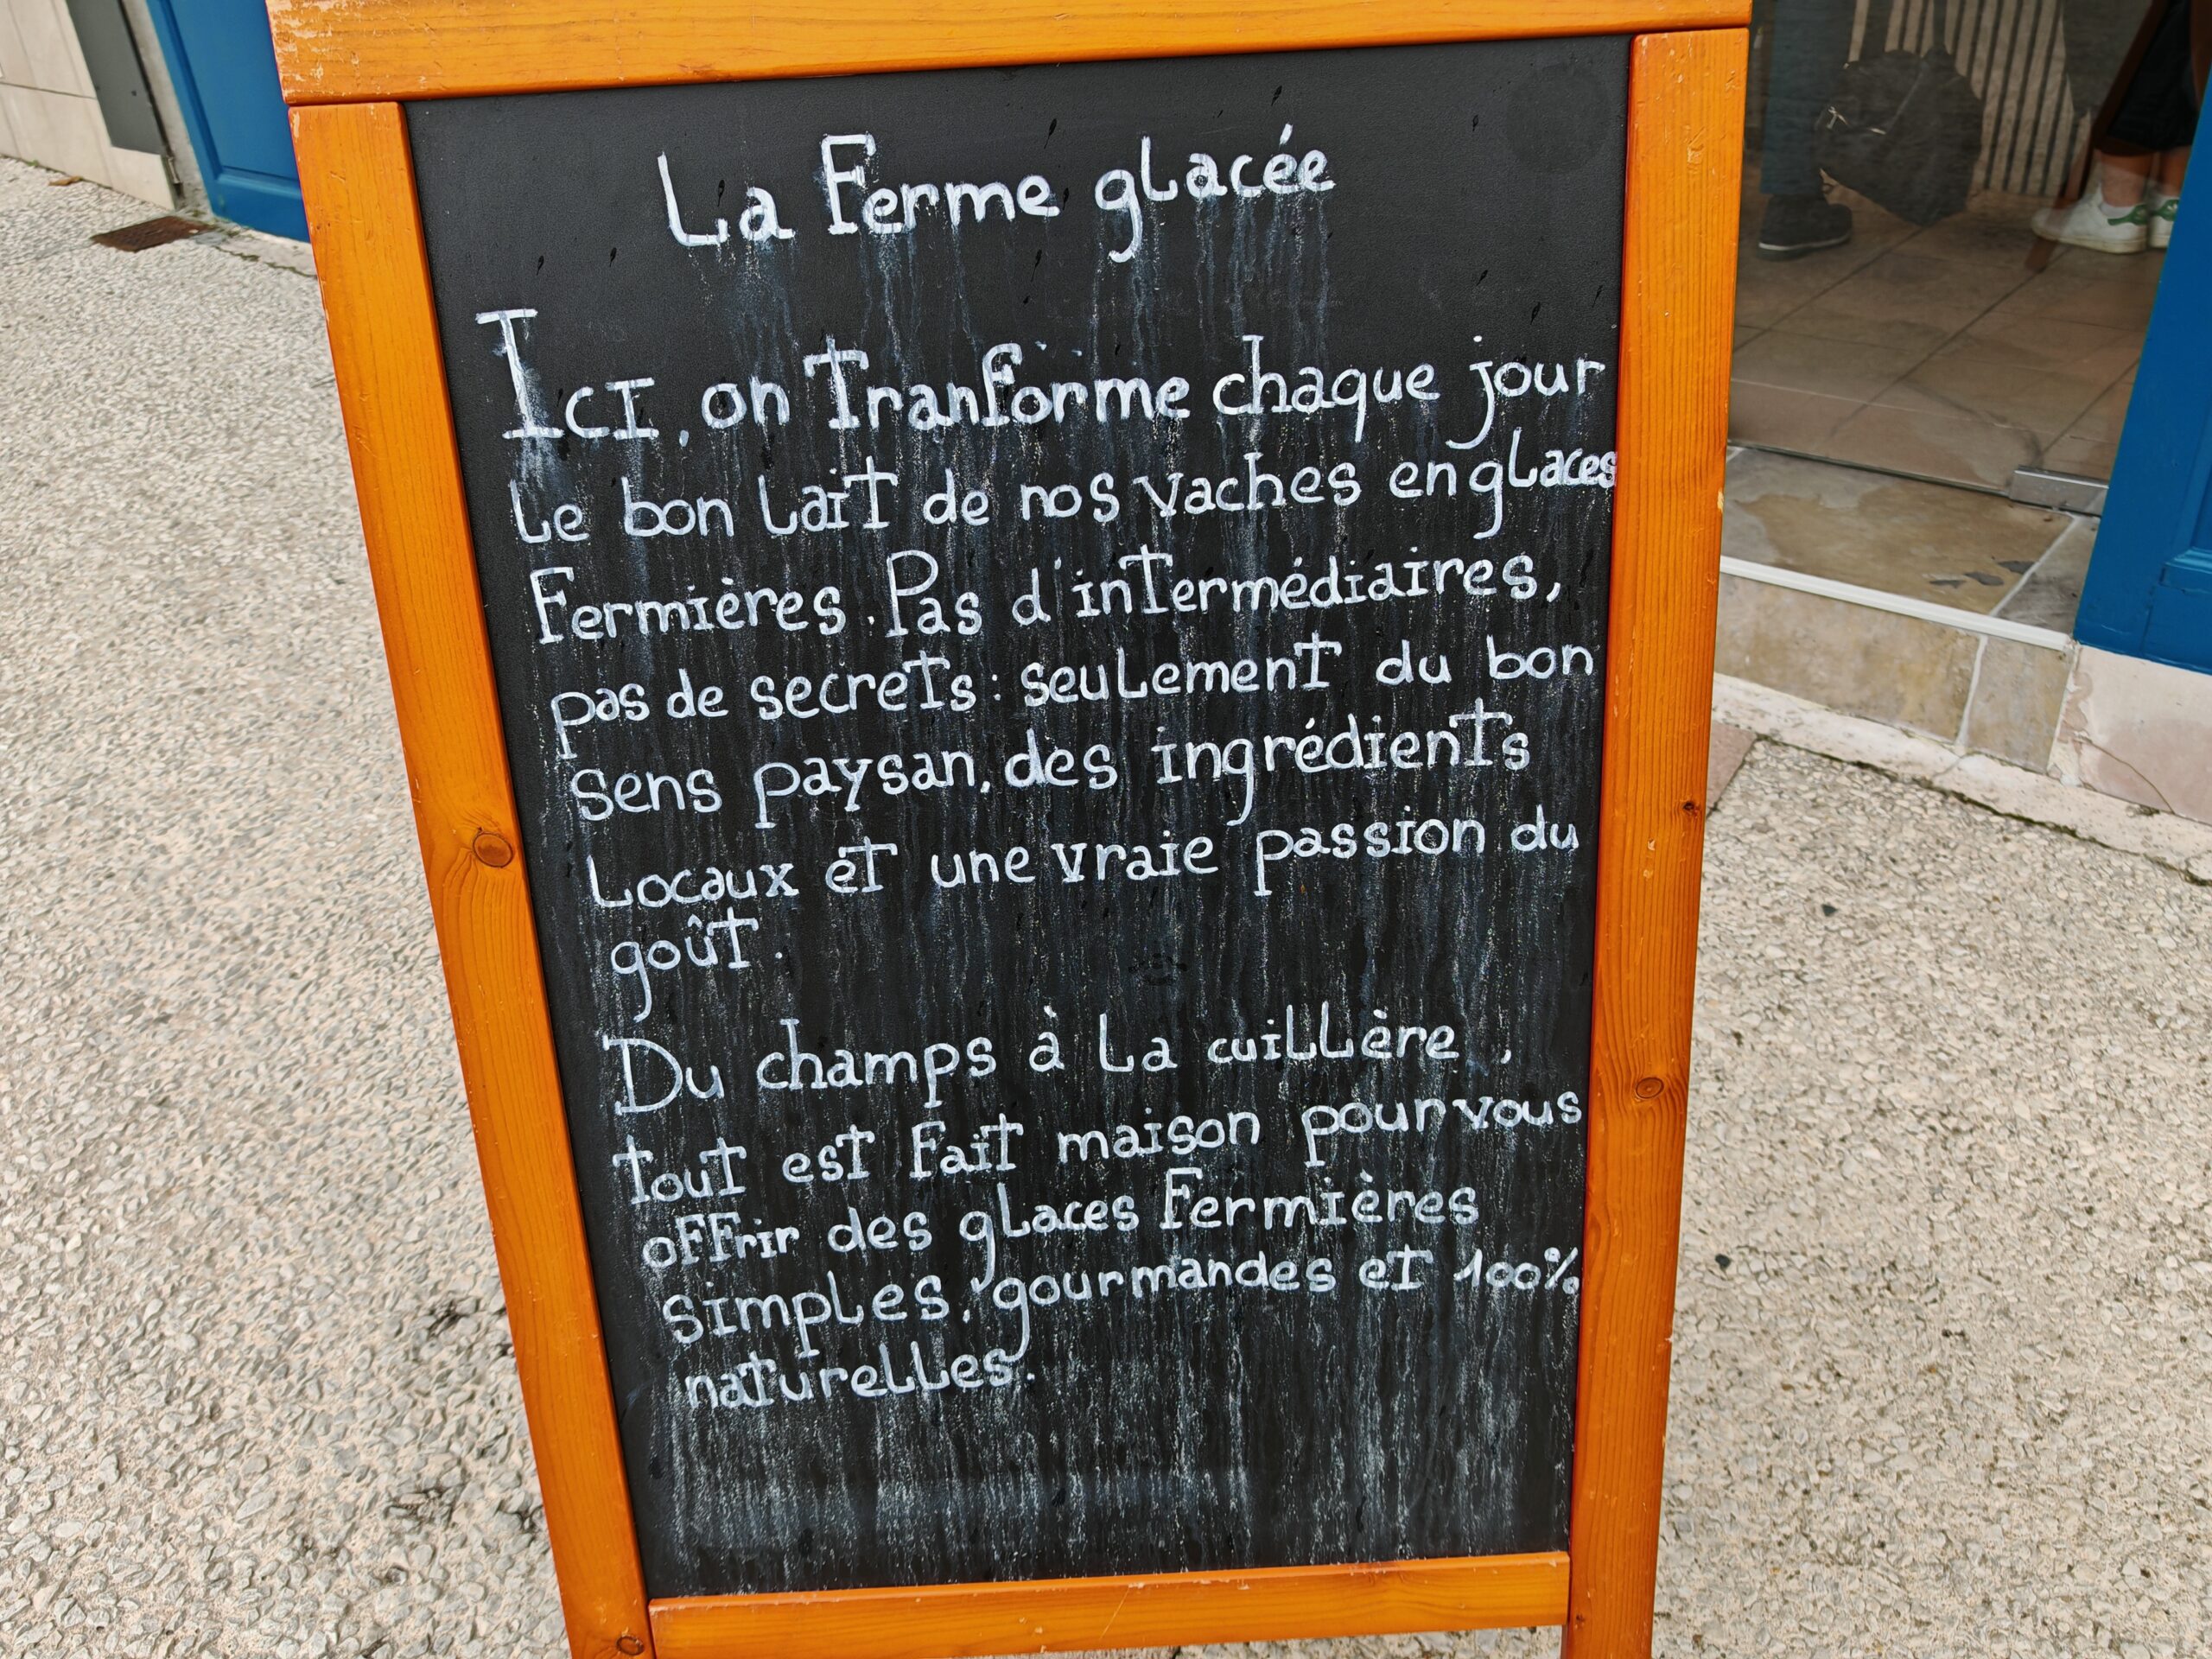 La Ferme glacée
Ici, on Tranforme chaque jour
Le bon Lait de nos vaches en glaces
Fermières. Pas d'intermédiaires,
pas de secrets : seulement du bon
sens paysan, des ingrédients
Locaux et une vraie passion du
goût.
Du champs à La cuillère,
tout est Fait maison pour vous
oFFrir des glaces Fermières
simples, gourmandes et 100%
naturelles.